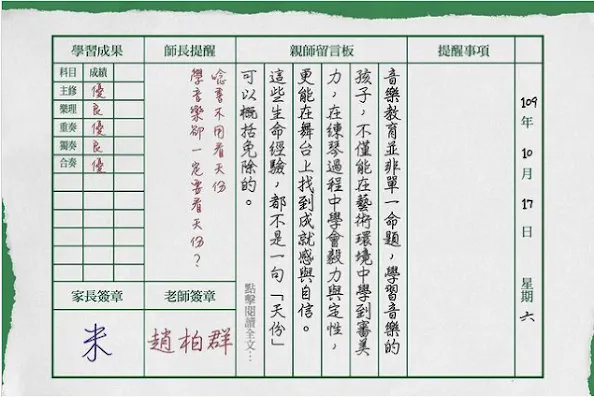 109年10月17日 星期六
提醒事項
親師留言板
音樂教育並非單一命題，學習音樂的
孩子，不僅能在藝術環境中學到審美
力，在練琴過程中學會毅力與定性，
更能在舞台上找到成就感與自信。
這些生命經驗，都不是一句「天份」
可以概括免除的。
點擊閱讀全文…
師長提醒
唸書不用看天份
學音樂卻一定要看天份？
老師簽章
趙柏群
學習成果
科目 成績
主修 優
樂理 良
重奏 優
獨奏 良
合奏 優
家長簽章
米